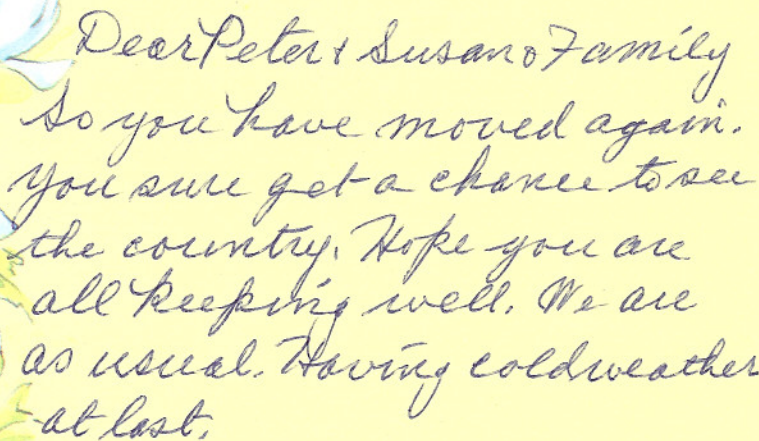 Dear Peter & Susan & Family
So you have moved again.
You sure get a chance to see
the country. Hope you are
all keeping well. We are
as usual. Having cold weather
at last.